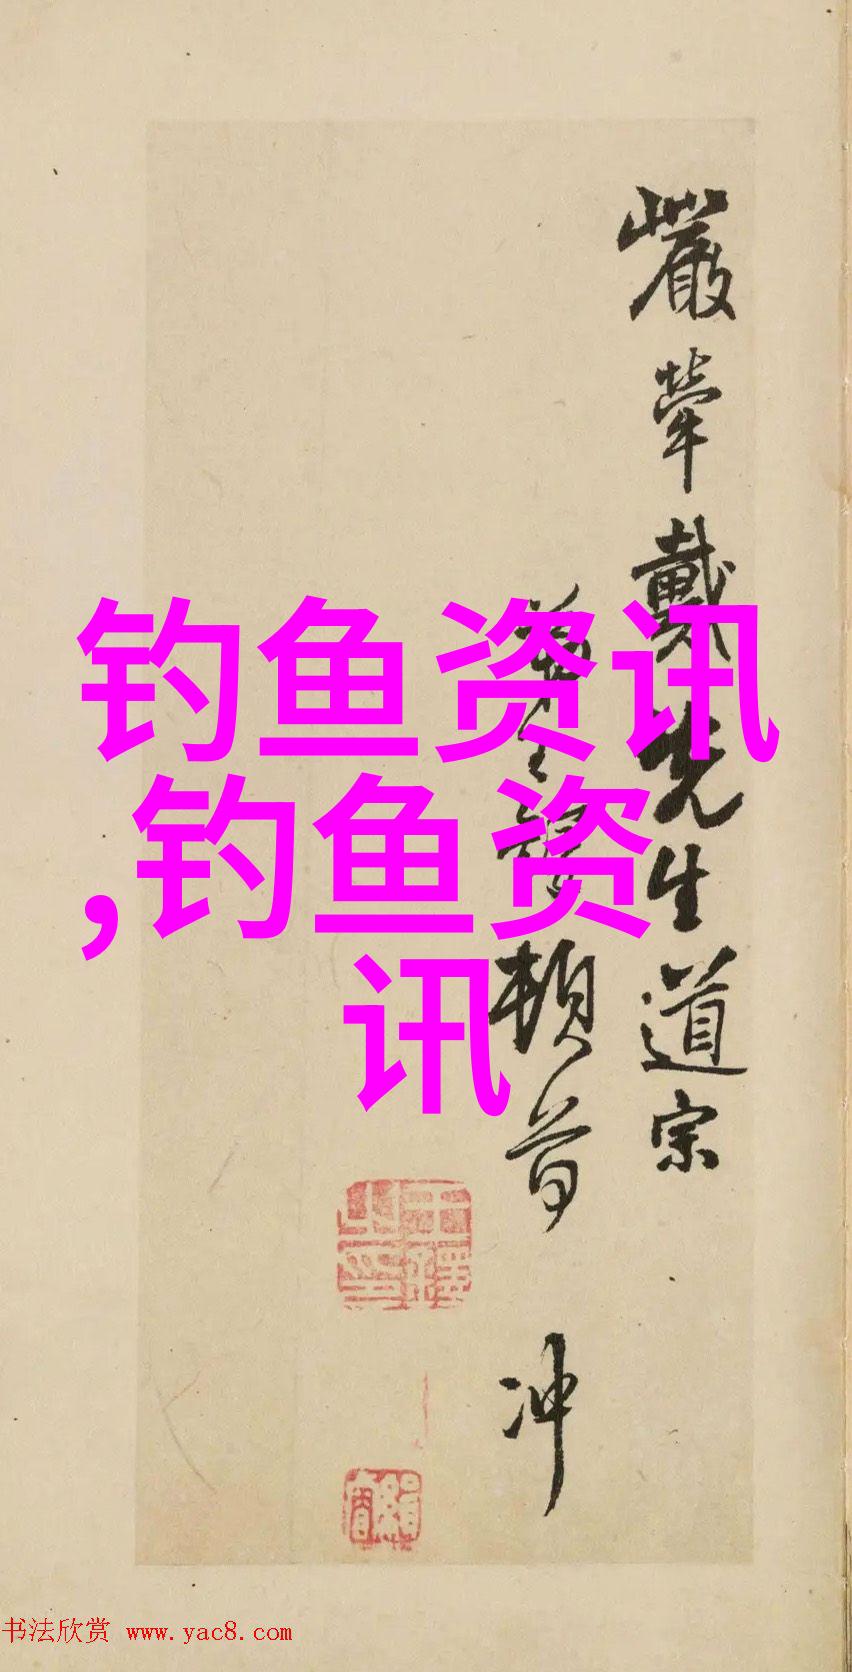 嚴犖戴先生道宗
頓首 冲
钓鱼资讯
,钓鱼资
讯
书法欣赏 www.yac8.com